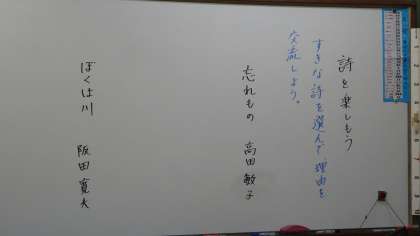 詩を楽しもう
すきな詩を選んで理由を
交流しよう。
忘れもの　高田敏子
ぼくは川　阪田寛夫